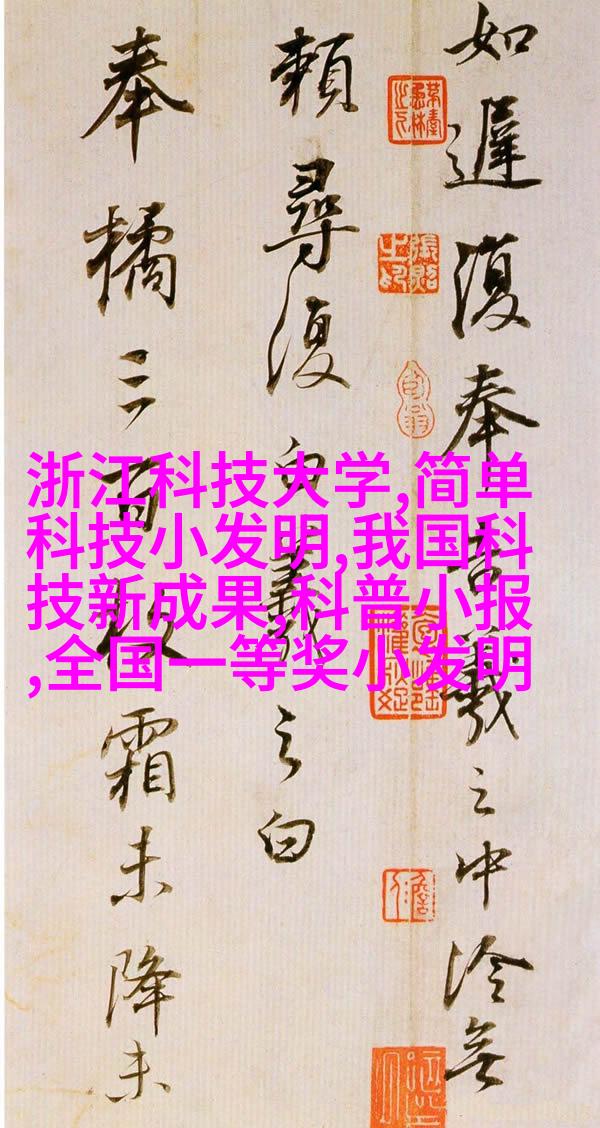 如遲復奉告羲之中冷無
賴尋復白羲之白
奉橘三百枚霜未降未
浙江科技大学,简单
科技小发明,我国科
技新成果,科普小报
,全国一等奖小发明